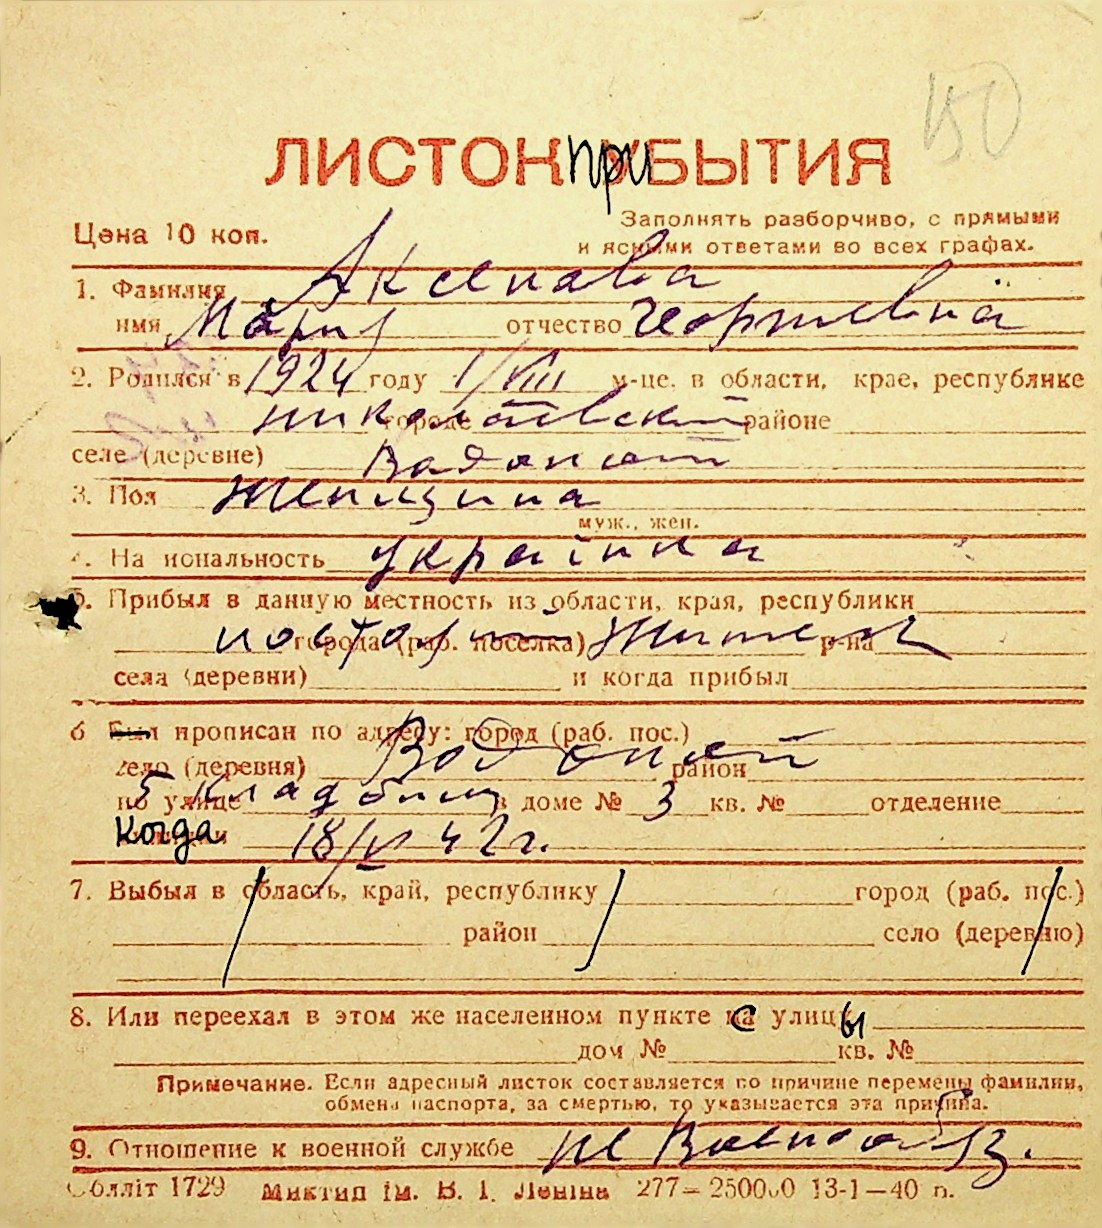 150
ЛИСТОК при БЫТИЯ
Цена 10 коп.
Заполнять разборчиво, с прямыми
и ясными ответами во всех графах.
1. Фамилия Аксенова
имя Мария отчество Георгиевна
2. Родился в 1924 году 1/VIII м-це, в области, крае, республике
николаевский городе районе
селе (деревне) Водопой
3. Пол Женщина
муж., жен.
4. На иональность украінка
5. Прибыл в данную местность из области, края, республики
города (раб. поселка) постоян житель р-на
села (деревни) и когда прибыл
6 Был прописан по адресу: город (раб. пос.)
село (деревня) Водопой район
по улице 5 кладбищ в доме № 3 кв. № отделение
когда 18/VI 42 г.
7. Выбыл в область, край, республику город (раб. пос.)
район село (деревню)
8. Или переехал в этом же населенном пункте с улицы
дом № кв. №
Примечание. Если адресный листок составляется по причине перемены фамилии,
обмена паспорта, за смертью, то указывается эта причина.
9. Отношение к военной службе не военнообяз.
Облліт 1729 Миктип ім. В. І. Леніна 277—250000 13-1—40 п.